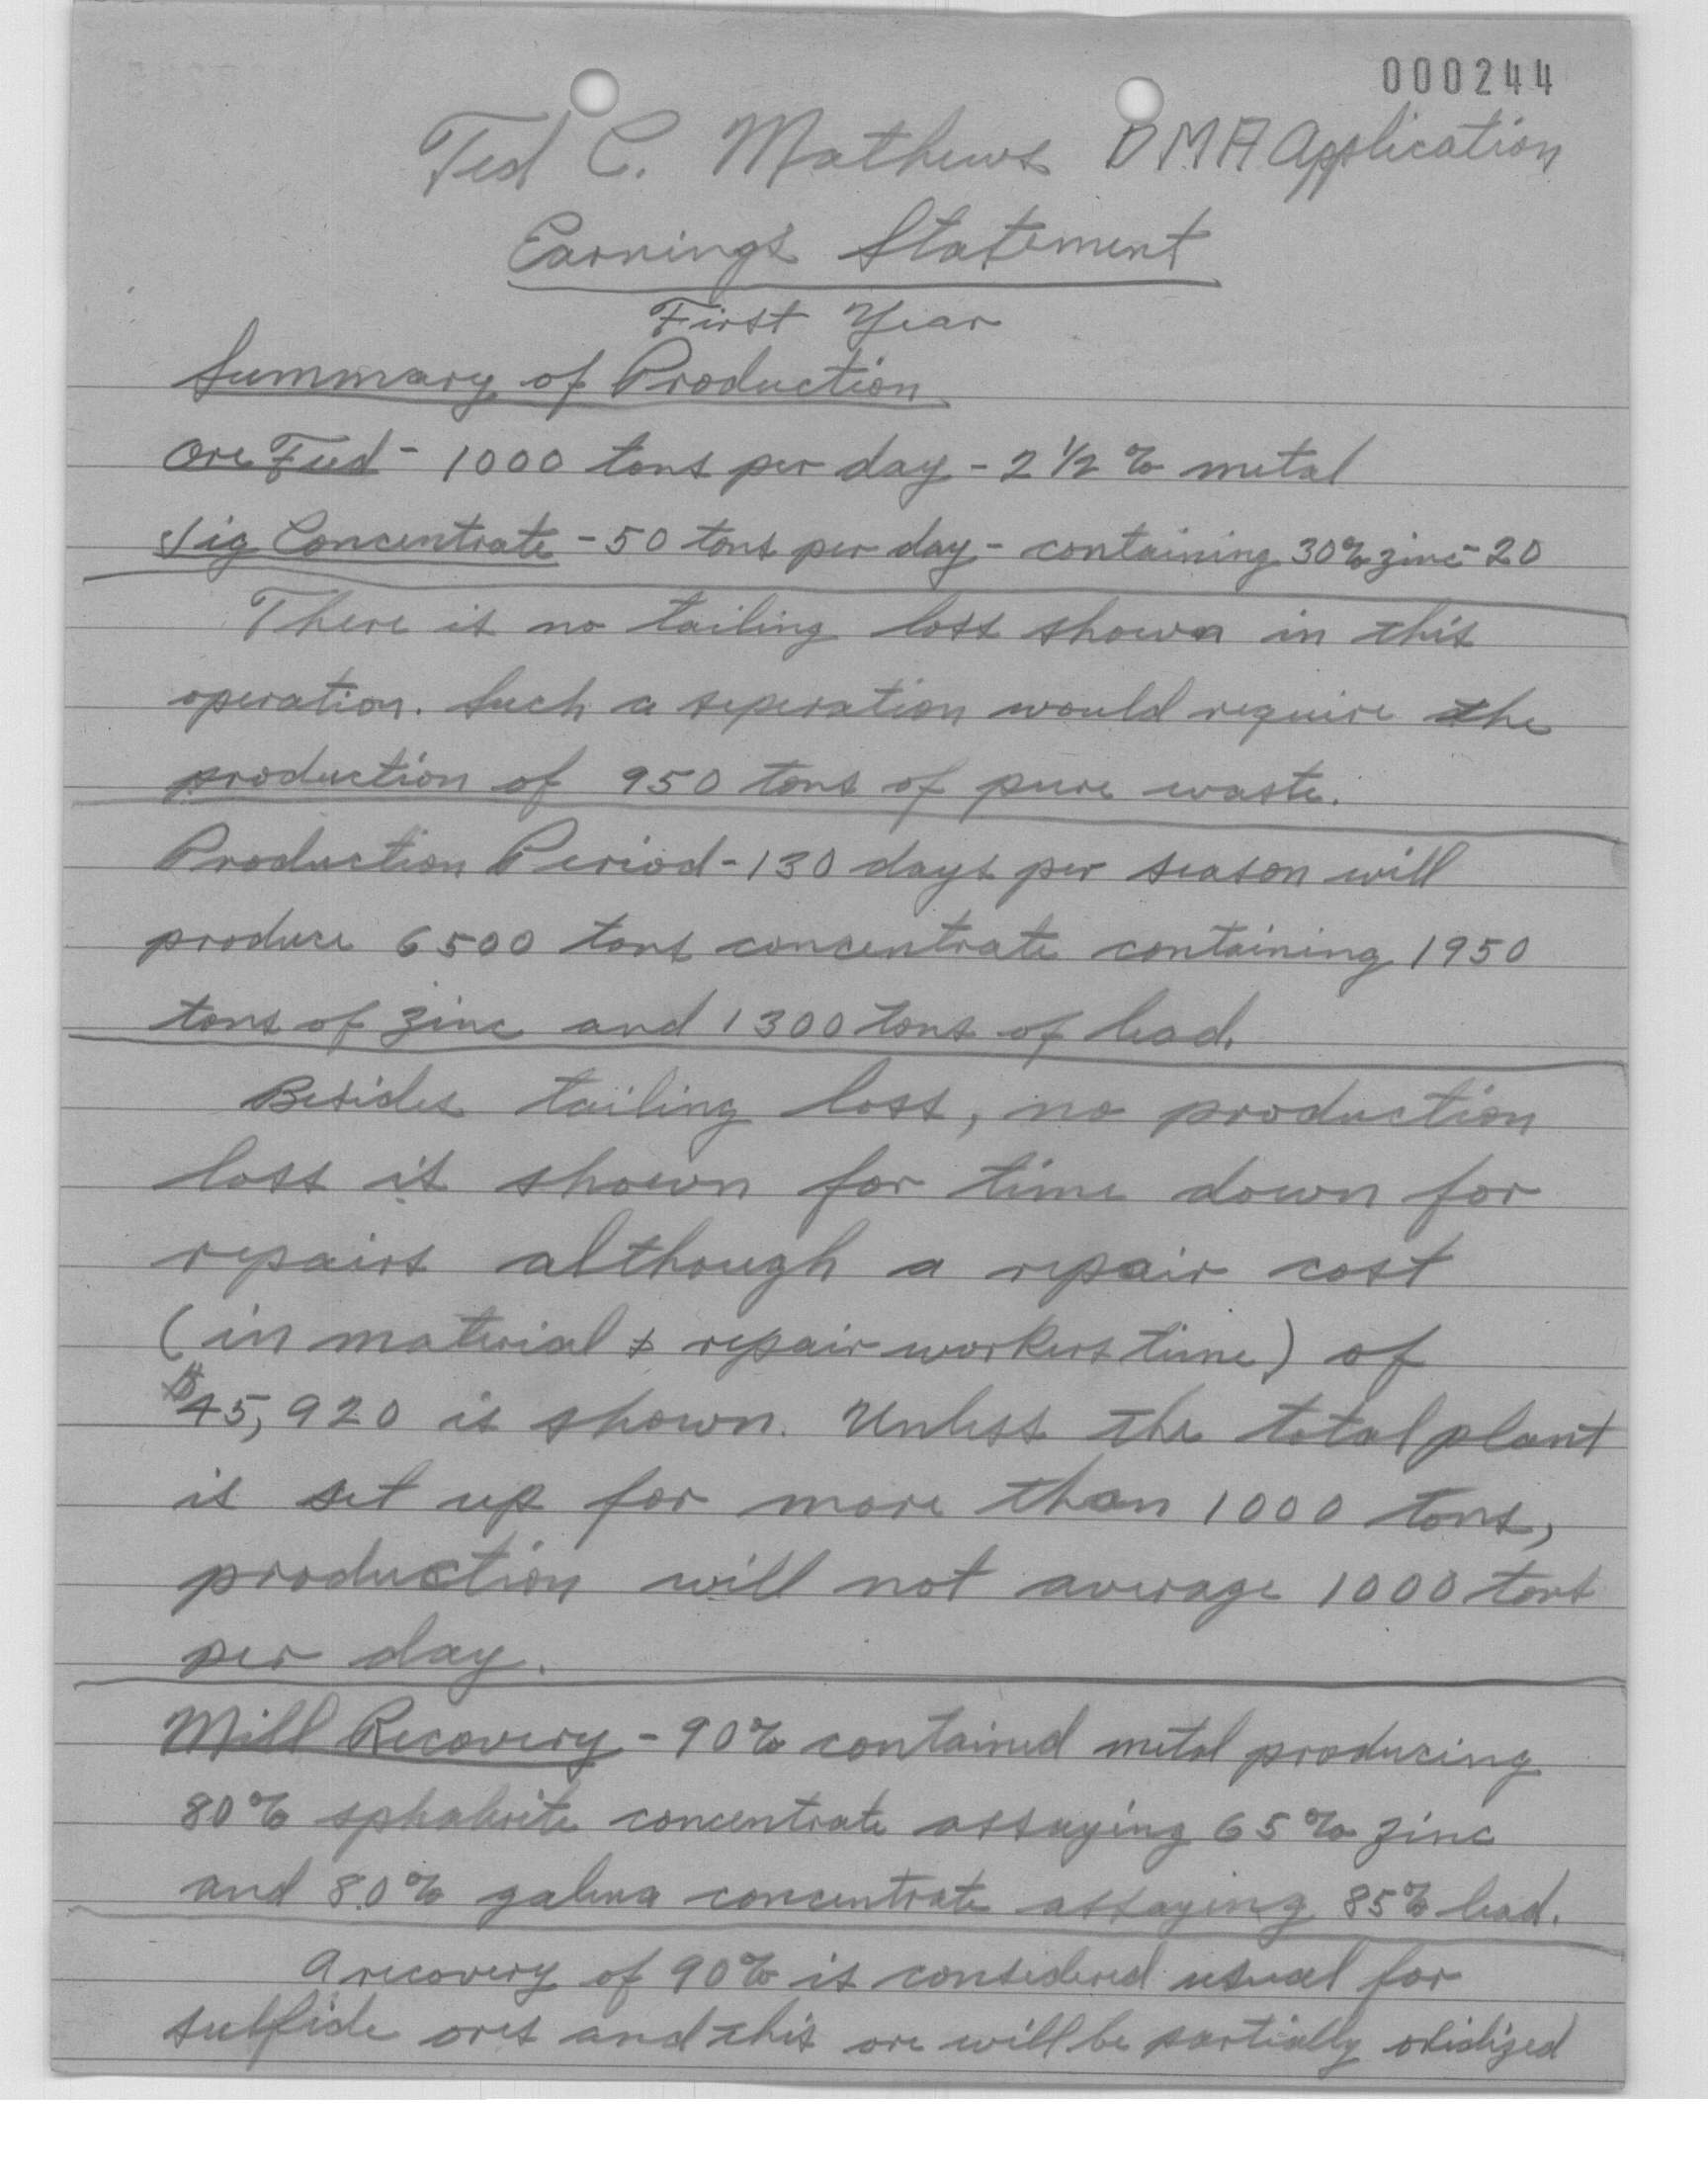 000244
Ted C. Mathews DMA Application
Earnings Statement
First Year
Summary of Production
Ore Feed - 1000 tons per day - 2 1/2 % metal
Jig Concentrate - 50 tons per day - containing 30% zinc - 20
There is no tailing loss shown in this
operation. Such a seperation would require the
production of 950 tons of pure waste.
Production Period - 130 days per season will
produce 6500 tons concentrate containing 1950
tons of zinc and 1300 tons of lead.
Besides tailing loss, no production
loss is shown for time down for
repairs although a repair cost
(in material & repair workers time) of
$45,920 is shown. Unless the total plant
is set up for more than 1000 tons,
production will not average 1000 tons
per day.
Mill Recovery - 90% contained metal producing
80% sphalerite concentrate assaying 65% zinc
and 80% galena concentrate assaying 85% lead.
A recovery of 90% is considered usual for
sulfide ores and this ore will be partially oxidized